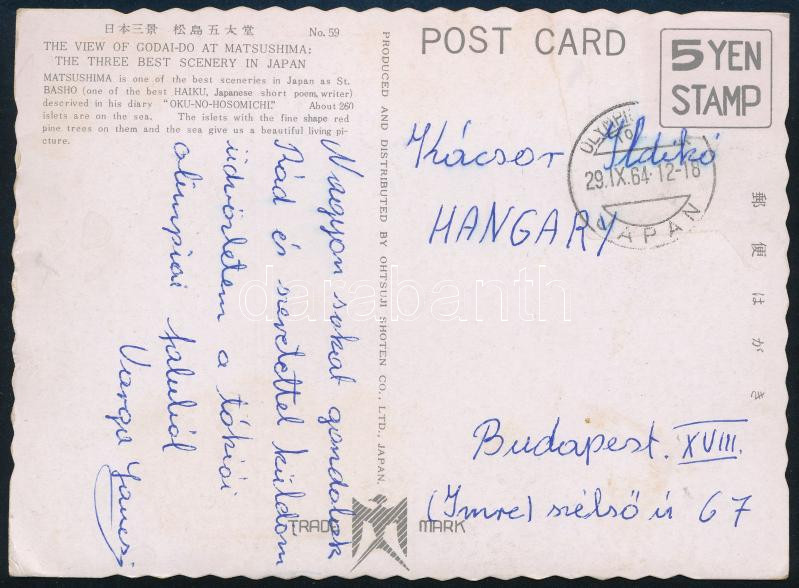 日本三景 松島五大堂 No. 59
THE VIEW OF GODAI-DO AT MATSUSHIMA:
THE THREE BEST SCENERY IN JAPAN
MATSUSHIMA is one of the best sceneries in Japan as St.
BASHO (one of the best HAIKU, Japanese short poem, writer)
descrived in his diary "OKU-NO-HOSOMICHI." About 260
islets are on the sea. The islets with the fine shape red
pine trees on them and the sea give us a beautiful living pi-
cture.
Nagyon sokat gondolok
Rád és szeretettel küldöm
üdvözletem a tókiói
olimpiai faluból
Varga Jancsi
PRODUCED AND DISTRIBUTED BY OHTSUJI SHOTEN CO., LTD., JAPAN.
TRADE MARK
POST CARD
5 YEN
STAMP
29.IX.64.12-18
JAPAN
Kácsor Ildikó
HANGARY
Budapest. XVIII.
(Imre) szélső ú 67
郵便はがき
darabanth